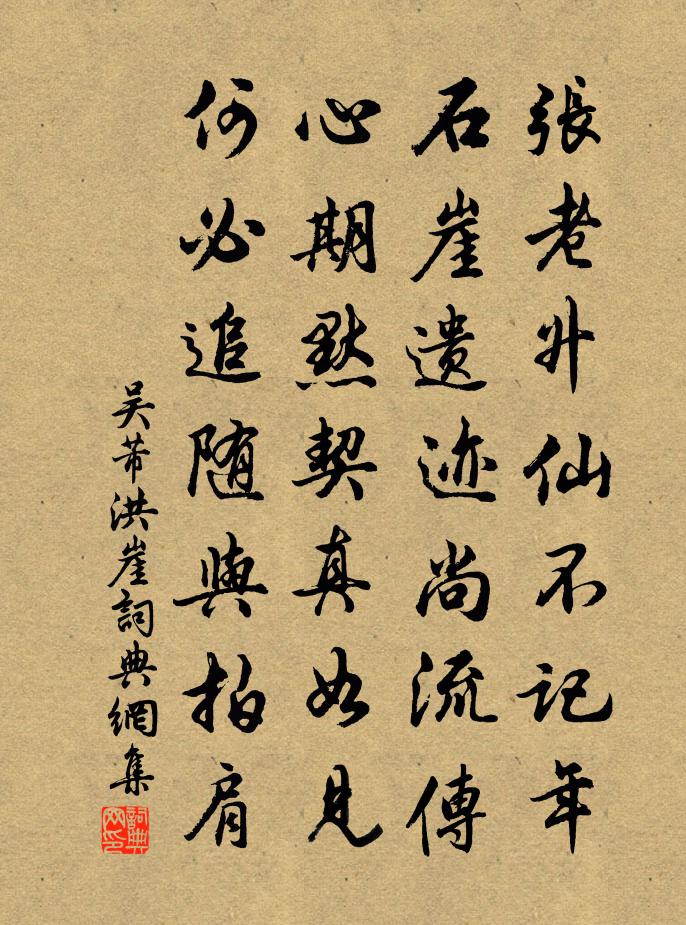 張老升仙不记年
石崖遗迹尚流傳
心期默契真如見
何必追随與拍肩
吴芾洪崖詞典網集
詞典網印